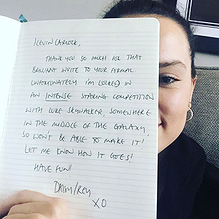 KEVIN CARLOCK,
THANK YOU SO MUCH FOR THAT
BRILLIANT INVITE TO YOUR FORMAL
UNFORTUNATELY I'M LOCKED IN
AN INTENSE STARING COMPETITION
WITH LUKE SKYWALKER SOMEWHERE
IN THE MIDDLE OF THE GALAXY,
SO WON'T BE ABLE TO MAKE IT!
LET ME KNOW HOW IT GOES!
HAVE FUN!
XO